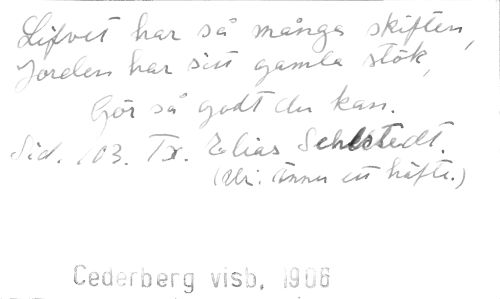 Lifvet har så många skiften,
Jorden har sitt gamla stök,
Gör så godt du kan.
Sid. 103. Tx. Elias Sehlstedt.
(Ur: Ännu ett häfte.)
Cederberg visb. 1906